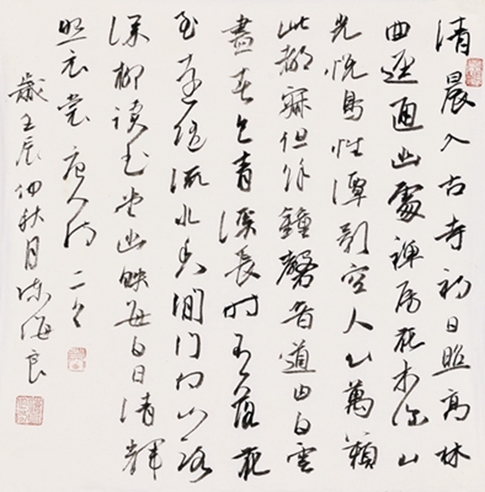 清晨入古寺初日照高林
曲逕通幽處禅房花木深山
光悦鸟性潭影空人心萬籟
此都寂但餘鐘磬音道由白雲
盡春与青溪長時有落花
至遠隨流水香閒門向山路
深柳讀書堂幽映每白日清輝
照衣裳唐人诗二首
歲壬辰仲秋月陈海良